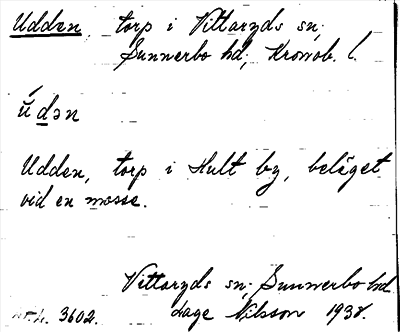 Udden, torp i Vittaryds sn;
Sunnerbo hd; Kronob. l.
údən
Udden, torp i Hult by, beläget
vid en mosse.
Vittaryds sn; Sunnerbo hd.
3602. Lage Nilsson 1938.